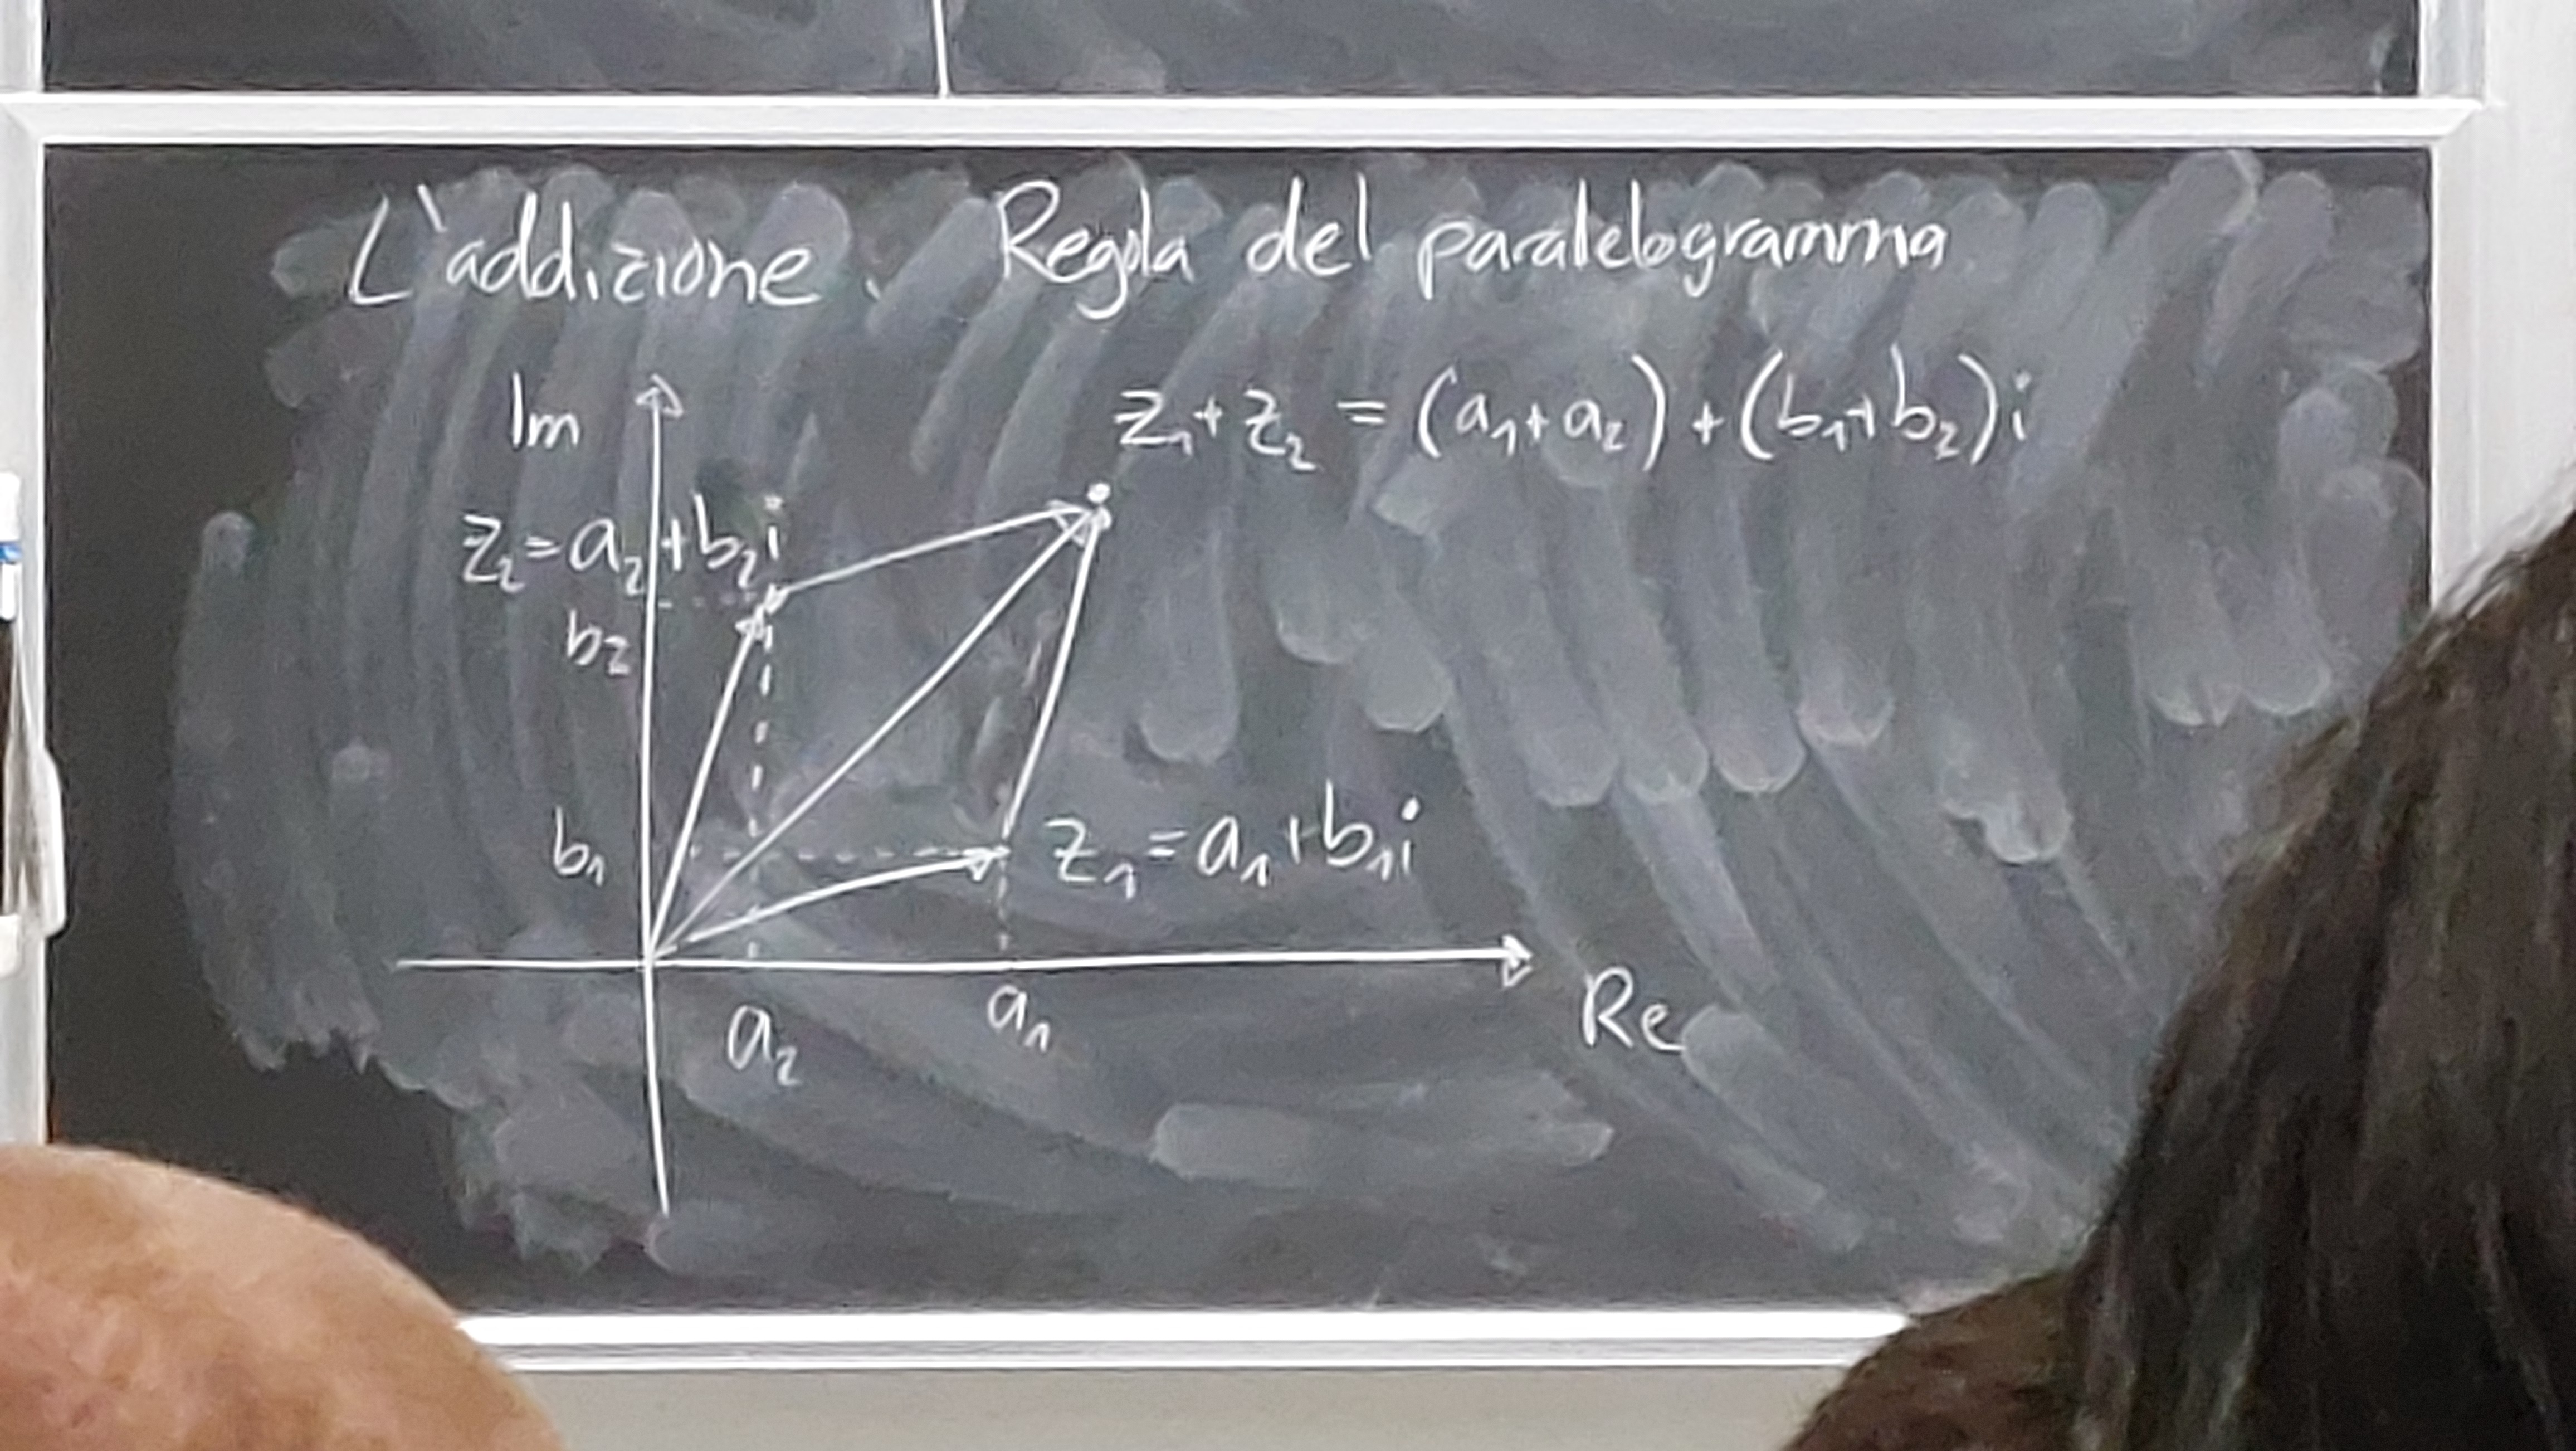 L'addizione. Regola del paralelogramma
Im
z₁+z₂ = (a₁+a₂)+(b₁+b₂)i
z₂=a₂+b₂i
b₂
b₁
z₁=a₁+b₁i
a₂
a₁
Re